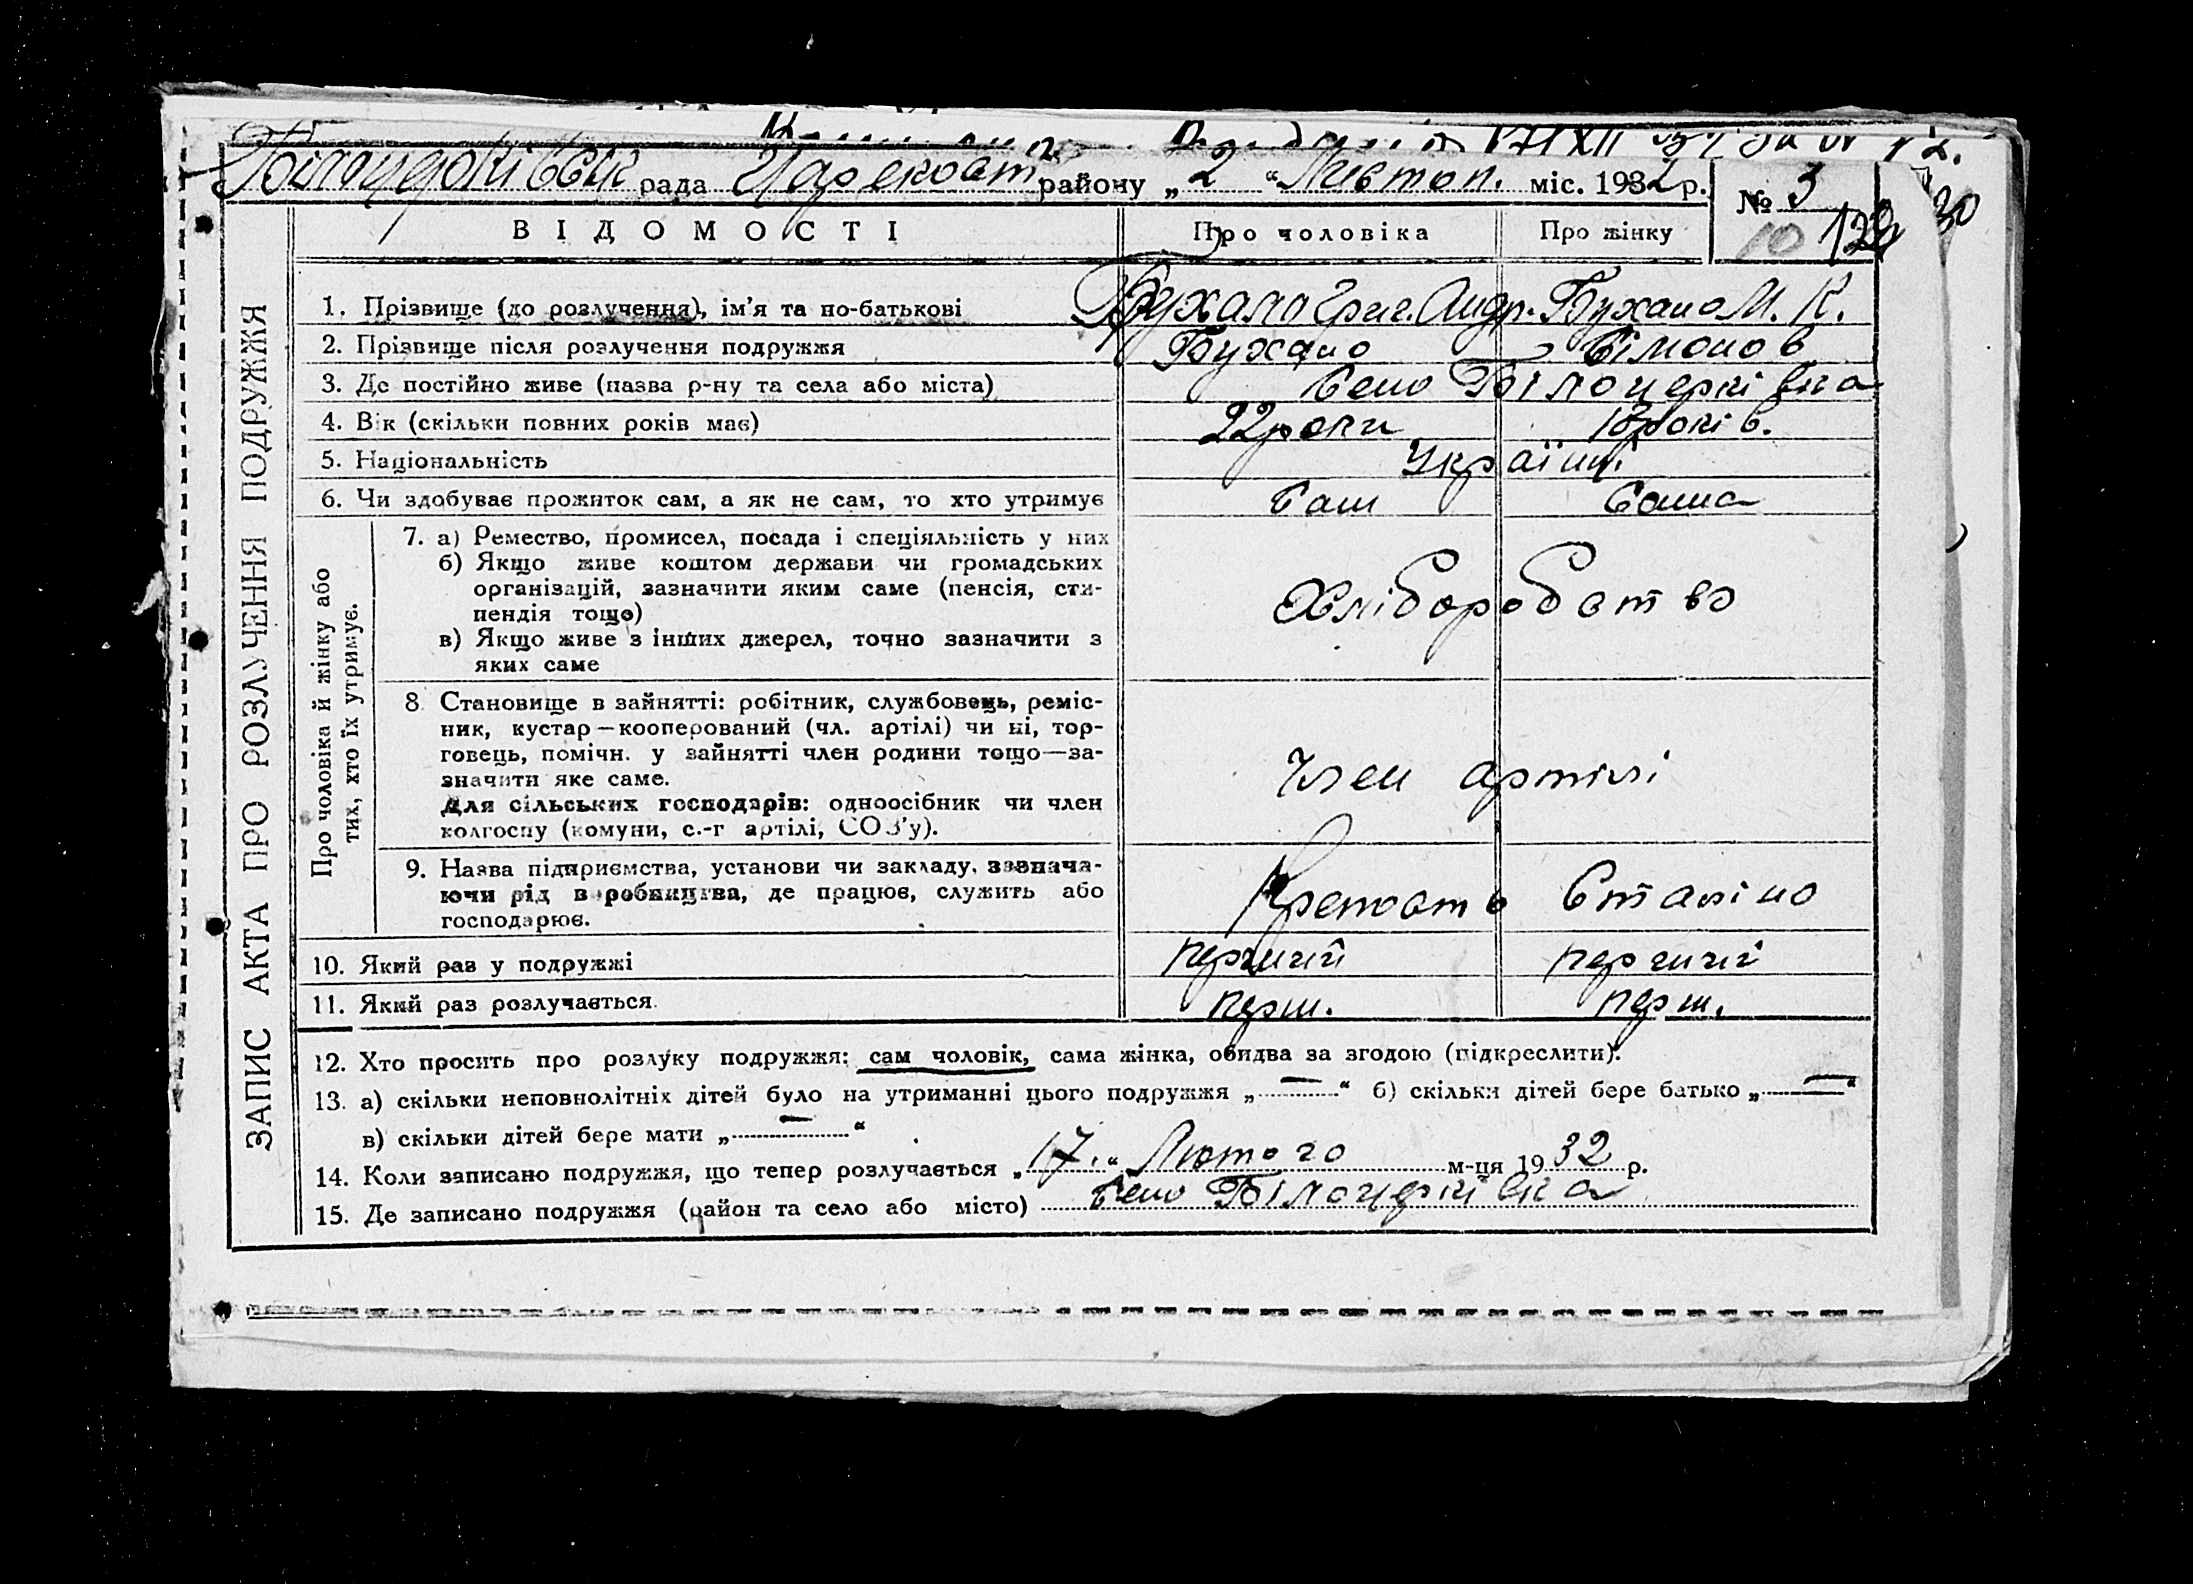 рада району „ 2 “ Листоп. міс. 1932 р.
№ 3
10
ВІДОМОСТІ Про чоловіка Про жінку
ЗАПИС АКТА ПРО РОЗЛУЧЕННЯ ПОДРУЖЖЯ
1. Прізвище (до розлучення), ім’я та по-батькові Бухало Григ. Андр. Бухало М. К.
2. Прізвище після розлучення подружжя Бухало
3. Де постійно живе (назва р-ну та села або міста) Село Білоцерківка
4. Вік (скільки повних років має) 22 роки років.
5. Національність Українці
6. Чи здобуває прожиток сам, а як не сам, то хто утримує Сам Сама
Про чоловіка й жінку або
тих, хто їх утримує.
7. а) Ремество, промисел, посада і спеціяльність у них
б) Якщо живе коштом держави чи громадських
організацій, зазначити яким саме (пенсія, сти-
пендія тощо)
в) Якщо живе з інших джерел, точно зазначити з
яких саме
Хліборобство
8. Становище в зайнятті: робітник, службовець, реміс-
ник, кустар—кооперований (чл. артілі) чи ні, тор-
говець, помічн. у зайнятті член родини тощо—за-
значити яке саме.
Для сільських господарів: одноосібник чи член
колгоспу (комуни, с.-г артілі, СОЗ’у).
Член артілі
9. Назва підприємства, установи чи закладу, зазнача-
ючи рід виробництва, де працює, служить або
господарює.
Крепость Сталіно
10. Який раз у подружжі перший перший
11. Який раз розлучається. перш. перш.
12. Хто просить про розлуку подружжя: сам чоловік, сама жінка, обидва за згодою (підкреслити).
13. а) скільки неповнолітніх дітей було на утриманні цього подружжя „ — “ б) скільки дітей бере батько „ — “
в) скільки дітей бере мати „ — “
14. Коли записано подружжя, що тепер розлучається „ 17. “ Лютого м-ця 1932 р.
15. Де записано подружжя (район та село або місто) Село Білоцерківка